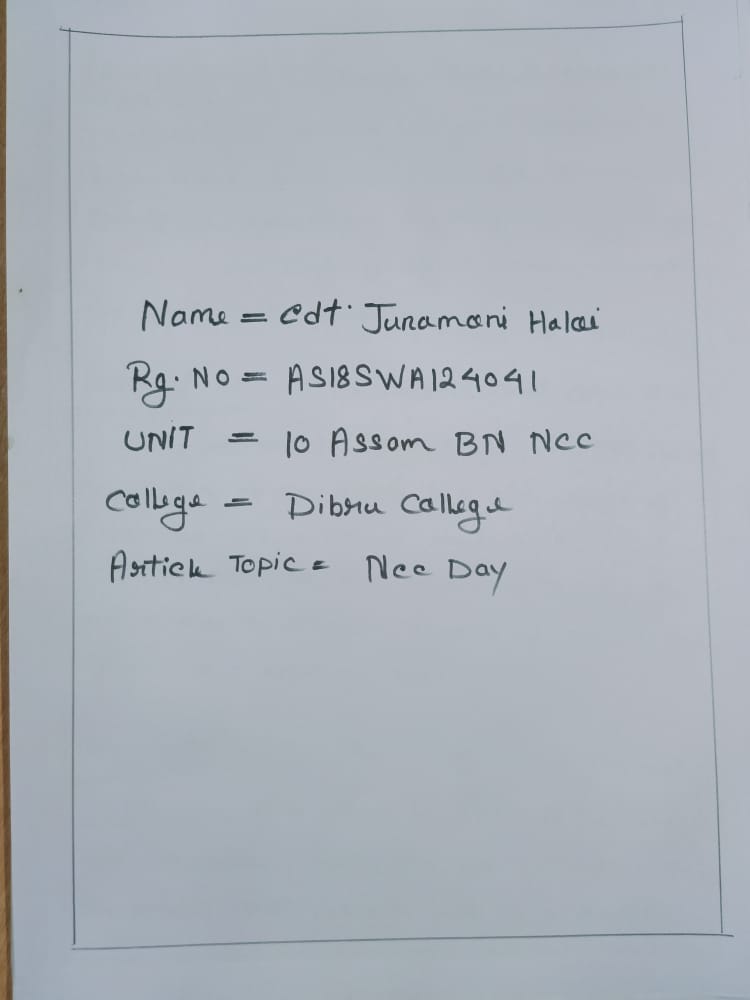 Name = Cdt. Junamoni Haloi
Rg. No = AS18SWA124041
UNIT = 10 Assam BN NCC
College = Dibru College
Article Topic = Ncc Day